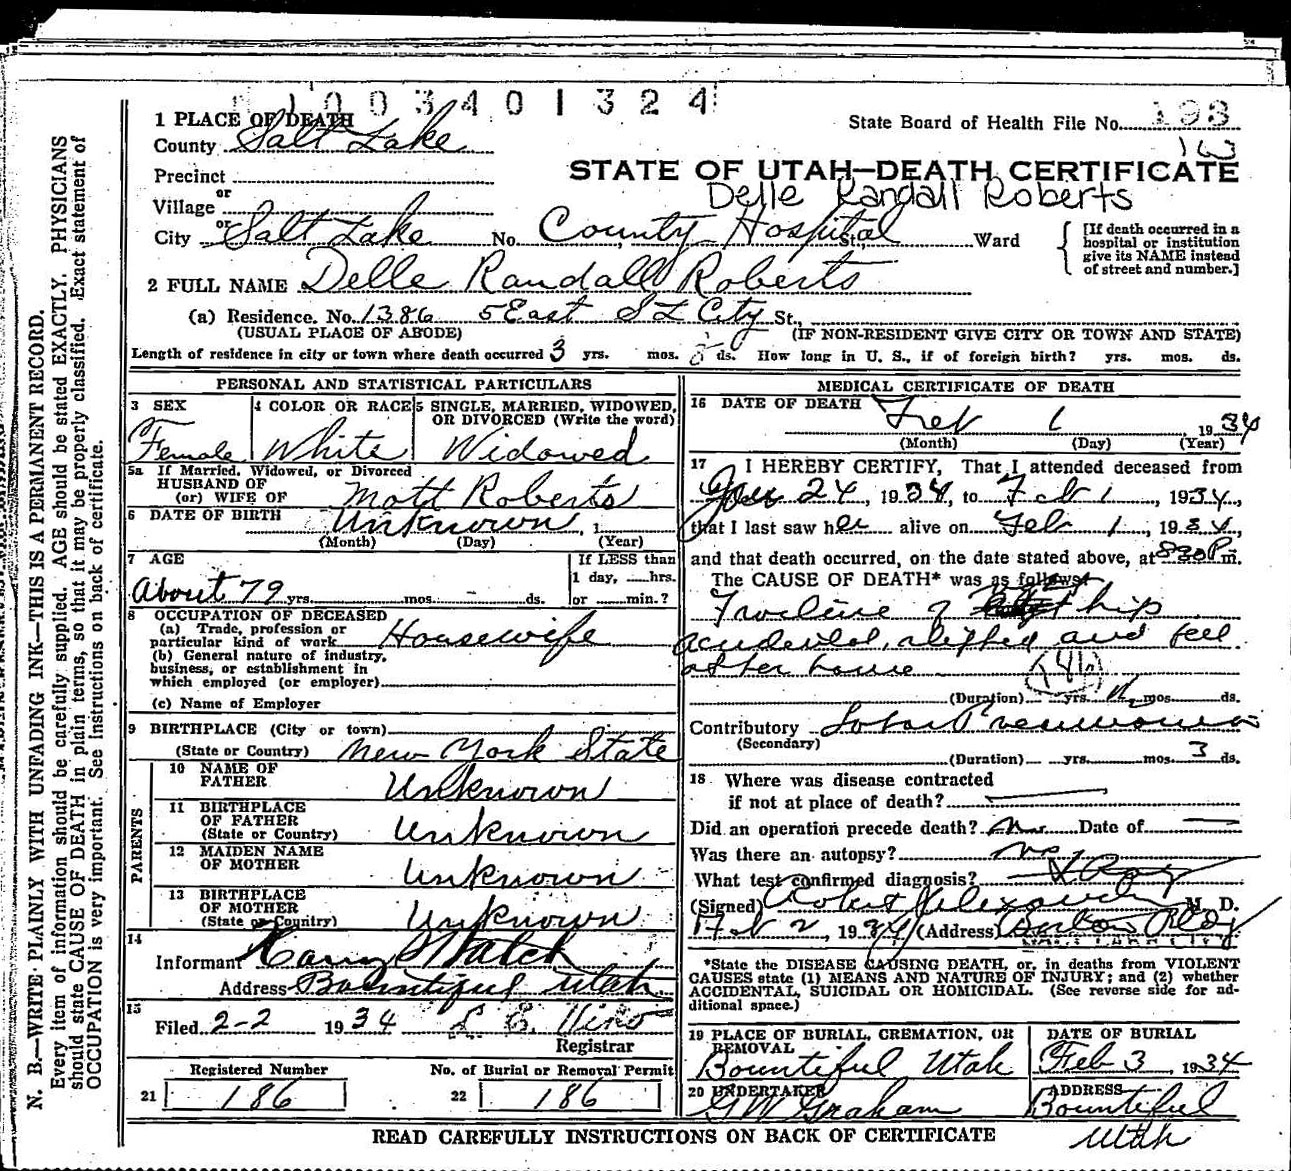 1003401324
1 PLACE OF DEATH
State Board of Health File No. 193
County Salt Lake
163
Precinct
STATE OF UTAH—DEATH CERTIFICATE
Delle Randall Roberts
or
Village
or
City Salt Lake No. County Hospital St., Ward
[If death occurred in a
hospital or institution
give its NAME instead
of street and number.]
2 FULL NAME Delle Randall Roberts
(a) Residence. No. 1386 5 East S L City St.,
(USUAL PLACE OF ABODE) (IF NON-RESIDENT GIVE CITY OR TOWN AND STATE)
Length of residence in city or town where death occurred 3 yrs. mos. ds. How long in U. S., if of foreign birth? yrs. mos. ds.
PERSONAL AND STATISTICAL PARTICULARS
3 SEX 4 COLOR OR RACE 5 SINGLE, MARRIED, WIDOWED,
OR DIVORCED (Write the word)
Female White Widowed
5a If Married, Widowed, or Divorced
HUSBAND OF
(or) WIFE OF Mott Roberts
6 DATE OF BIRTH Unknown, 1
(Month) (Day) (Year)
7 AGE If LESS than
1 day, hrs.
About 79 yrs. mos. ds. or min.?
8 OCCUPATION OF DECEASED
(a) Trade, profession or
particular kind of work Housewife
(b) General nature of industry,
business, or establishment in
which employed (or employer)
(c) Name of Employer
9 BIRTHPLACE (City or town)
(State or Country) New York State
PARENTS
10 NAME OF
FATHER Unknown
11 BIRTHPLACE
OF FATHER
(State or Country) Unknown
12 MAIDEN NAME
OF MOTHER Unknown
13 BIRTHPLACE
OF MOTHER
(State or Country) Unknown
14
Informant Hatch
Address Bountiful Utah
15
Filed 2-2 1934
Registrar
Registered Number No. of Burial or Removal Permit
21 186 22 186
MEDICAL CERTIFICATE OF DEATH
16 DATE OF DEATH Feb 1 1934
(Month) (Day) (Year)
17 I HEREBY CERTIFY, That I attended deceased from
Jan 24, 1934, to Feb 1, 1934,
that I last saw her alive on Feb 1, 1934,
and that death occurred, on the date stated above, at 830 P m.
The CAUSE OF DEATH* was as follows:
Fracture of hip
accidental, slipped and fell
at her home
(Duration) yrs. mos. ds.
Contributory Lobar Pneumonia
(Secondary)
(Duration) yrs. mos. 3 ds.
18 Where was disease contracted
if not at place of death?
Did an operation precede death? no Date of
Was there an autopsy? no
What test confirmed diagnosis? X Ray
(Signed) Robert M. D.
Feb 2, 1934 (Address)
*State the DISEASE CAUSING DEATH, or, in deaths from VIOLENT
CAUSES state (1) MEANS AND NATURE OF INJURY; and (2) whether
ACCIDENTAL, SUICIDAL OR HOMICIDAL. (See reverse side for ad-
ditional space.)
19 PLACE OF BURIAL, CREMATION, OR
REMOVAL
Bountiful Utah
DATE OF BURIAL
Feb 3, 1934
20 UNDERTAKER
G W Graham
ADDRESS
Bountiful
Utah
READ CAREFULLY INSTRUCTIONS ON BACK OF CERTIFICATE
N. B.—WRITE PLAINLY WITH UNFADING INK—THIS IS A PERMANENT RECORD.
Every item of information should be carefully supplied. AGE should be stated EXACTLY. PHYSICIANS
should state CAUSE OF DEATH in plain terms, so that it may be properly classified. Exact statement of
OCCUPATION is very important. See instructions on back of certificate.